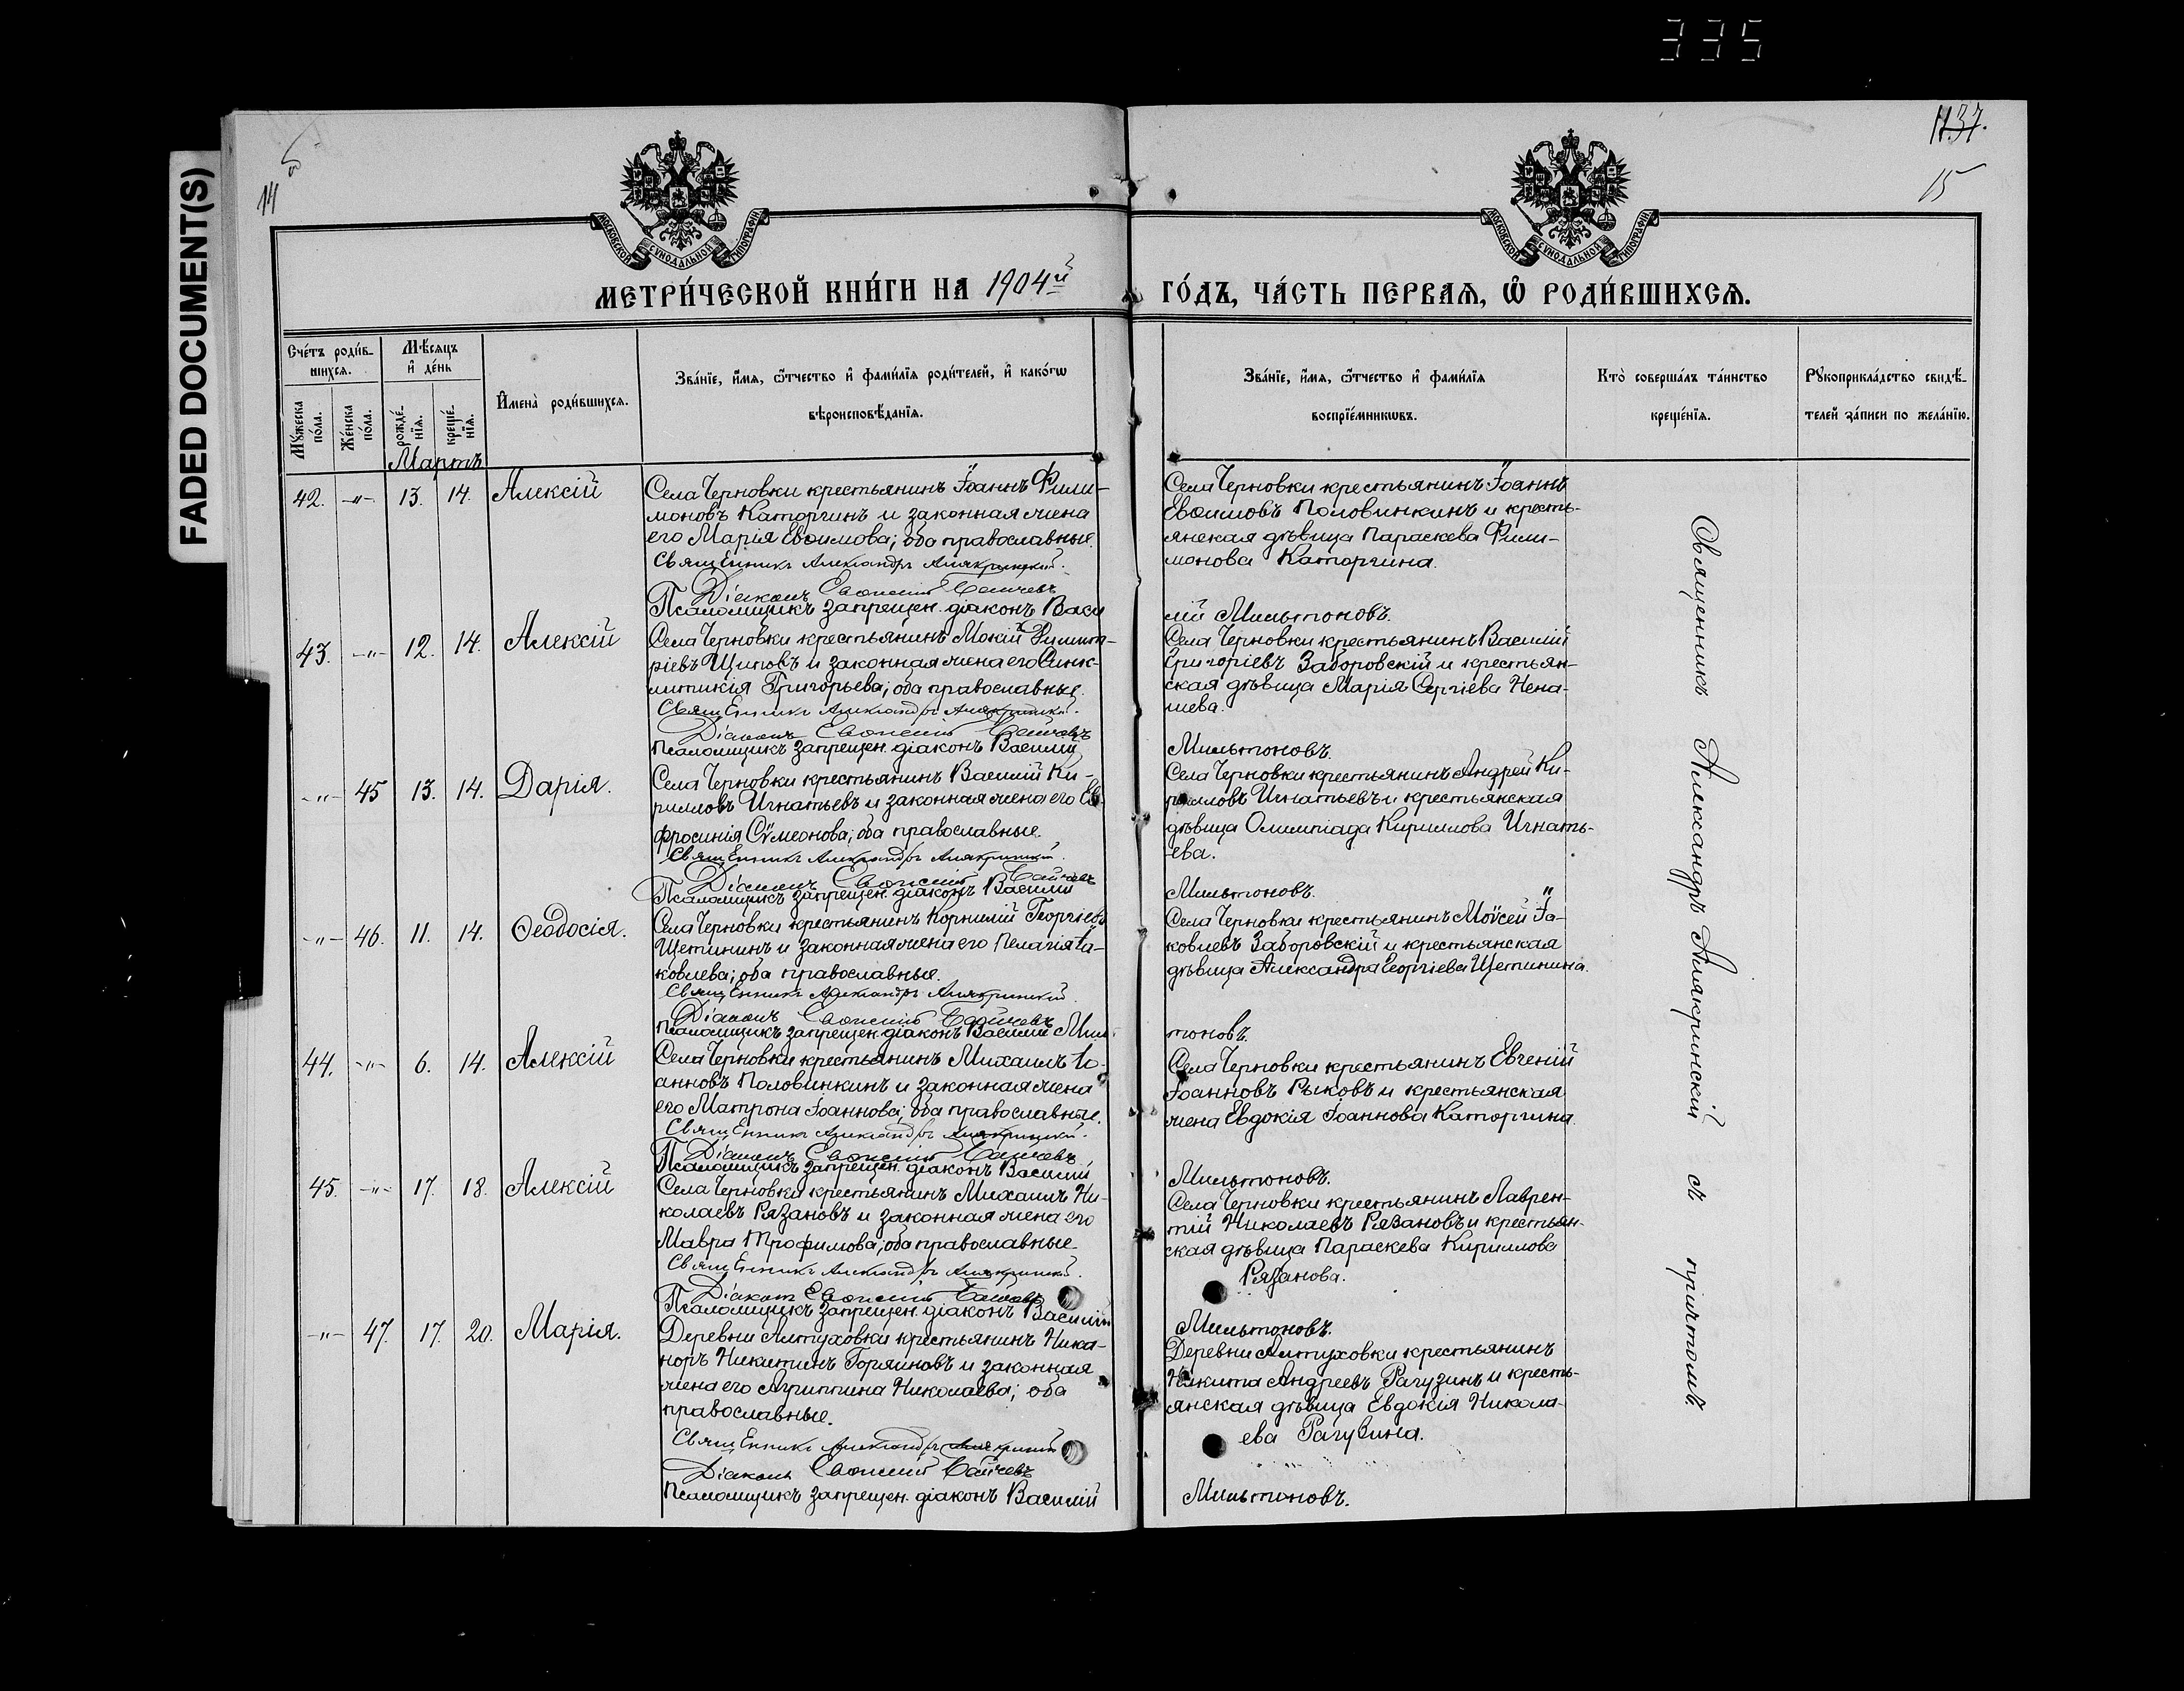 335
FADED DOCUMENT(S)
14
об
1137.
15
МОСКОВСКОЙ СѴНОДАЛЬНОЙ ТИПОГРАФІИ
МОСКОВСКОЙ СѴНОДАЛЬНОЙ ТИПОГРАФІИ
МЕТРИ́ЧЕСКОЙ КНИ́ГИ НА 1904й
ГО́ДЪ, ЧА́СТЬ ПЕРВАѦ, Ѡ҆ РОДИ́ВШИХСѦ.
Сче́тъ роди́в-
шихсѧ.
Мꙋ́жеска
по́ла.
Же́нска
по́ла.
Мѣ́сѧцъ
и҆ де́нь
рожде́-
нїѧ.
креще́-
нїѧ.
И҆мена̀ роди́вшихсѧ.
Зва́нїе, и҆́мѧ, ѻ҆́тчество и҆ фами́лїѧ роди́телей, и҆ како́гѡ
вѣроисповѣ́данїѧ.
Зва́нїе, и҆́мѧ, ѻ҆́тчество и҆ фами́лїѧ
воспрїе́мникѡвъ.
Кто̀ соверша́лъ та́инство
креще́нїѧ.
Рꙋкоприкла́дство свидѣ́-
телей за́писи по жела́нїю.
Мартъ
42. -„- 13. 14. Алексій
Села Черновки крестьянинъ Іоаннъ Фили-
моновъ Каторгинъ и законная жена
его Марія Евѳимова; оба православные.
Священникъ Александръ Алякринскій.
Діаконъ
Псаломщикъ запрещен. діаконъ Васи
Села Черновки крестьянинъ Іоаннъ
Евѳимовъ Половинкинъ и кресть-
янская дѣвица Параскева Фили-
монова Каторгина.
лій Мильтоновъ.
43. -„- 12. 14. Алексій
Села Черновки крестьянинъ Мокій Димит-
ріевъ Щиповъ и законная жена его Синк-
литикія Григорьева; оба православные.
Священникъ Александръ Алякринскій.
Діаконъ
Псаломщикъ запрещен. діаконъ Василій
Села Черновки крестьянинъ Василій
Григоріевъ Заборовскій и крестьян-
ская дѣвица Марія Сергіева Нена-
шева.
Мильтоновъ.
-„- 45 13. 14. Дарія.
Села Черновки крестьянинъ Василій Ки-
рилловъ Игнатьевъ и законная жена его Ев
фросинія Сѵмеонова; оба православные.
Священникъ Александръ Алякринскій.
Діаконъ
Псаломщикъ запрещен. діаконъ Василій
Села Черновки крестьянинъ Андрей Ки-
рилловъ Игнатьевъ и крестьянская
дѣвица Олимпіада Кириллова Игнать-
ева.
Мильтоновъ.
-„- 46. 11. 14. Ѳеодосія.
Села Черновки крестьянинъ Корнилій Георгіевъ
Щетининъ и законная жена его Пелагія Іа-
ковлева; оба православные.
Священникъ Александръ Алякринскій.
Діаконъ
Псаломщикъ запрещен. діаконъ Василій Миль
Села Черновки крестьянинъ Моѵсей Іа-
ковлевъ Заборовскій и крестьянская
дѣвица Александра Георгіева Щетинина.
тоновъ.
44. -„- 6. 14. Алексій
Села Черновки крестьянинъ Михаилъ Іо-
анновъ Половинкинъ и законная жена
его Матрона Іоаннова; оба православные.
Священникъ Александръ Алякринскій.
Діаконъ
Псаломщикъ запрещен. діаконъ Василій
Села Черновки крестьянинъ Евгеній
Іоанновъ Рыковъ и крестьянская
жена Евдокія Іоаннова Каторгина.
Мильтоновъ.
45. -„- 17. 18. Алексій
Села Черновки крестьянинъ Михаилъ Ни-
колаевъ Рязановъ и законная жена его
Мавра Трофимова; оба православные.
Священникъ Александръ Алякринскій.
Діаконъ
Псаломщикъ запрещен. діаконъ Василій
Села Черновки крестьянинъ Лаврен-
тій Николаевъ Рязановъ и крестьян-
ская дѣвица Параскева Кириллова
Рязанова.
Мильтоновъ.
-„- 47. 17. 20. Марія.
Деревни Алтуховки крестьянинъ Ника-
норъ Никитинъ Горяиновъ и законная
жена его Агриппина Николаева; оба
православные.
Священникъ Александръ Алякринскій
Діаконъ
Псаломщикъ запрещен. діаконъ Василій
Деревни Алтуховки крестьянинъ
Никита Андреевъ Рагузинъ и кресть-
янская дѣвица Евдокія Никола-
ева Рагузина.
Мильтоновъ.
Священникъ Александръ Алякринскій с причтомъ